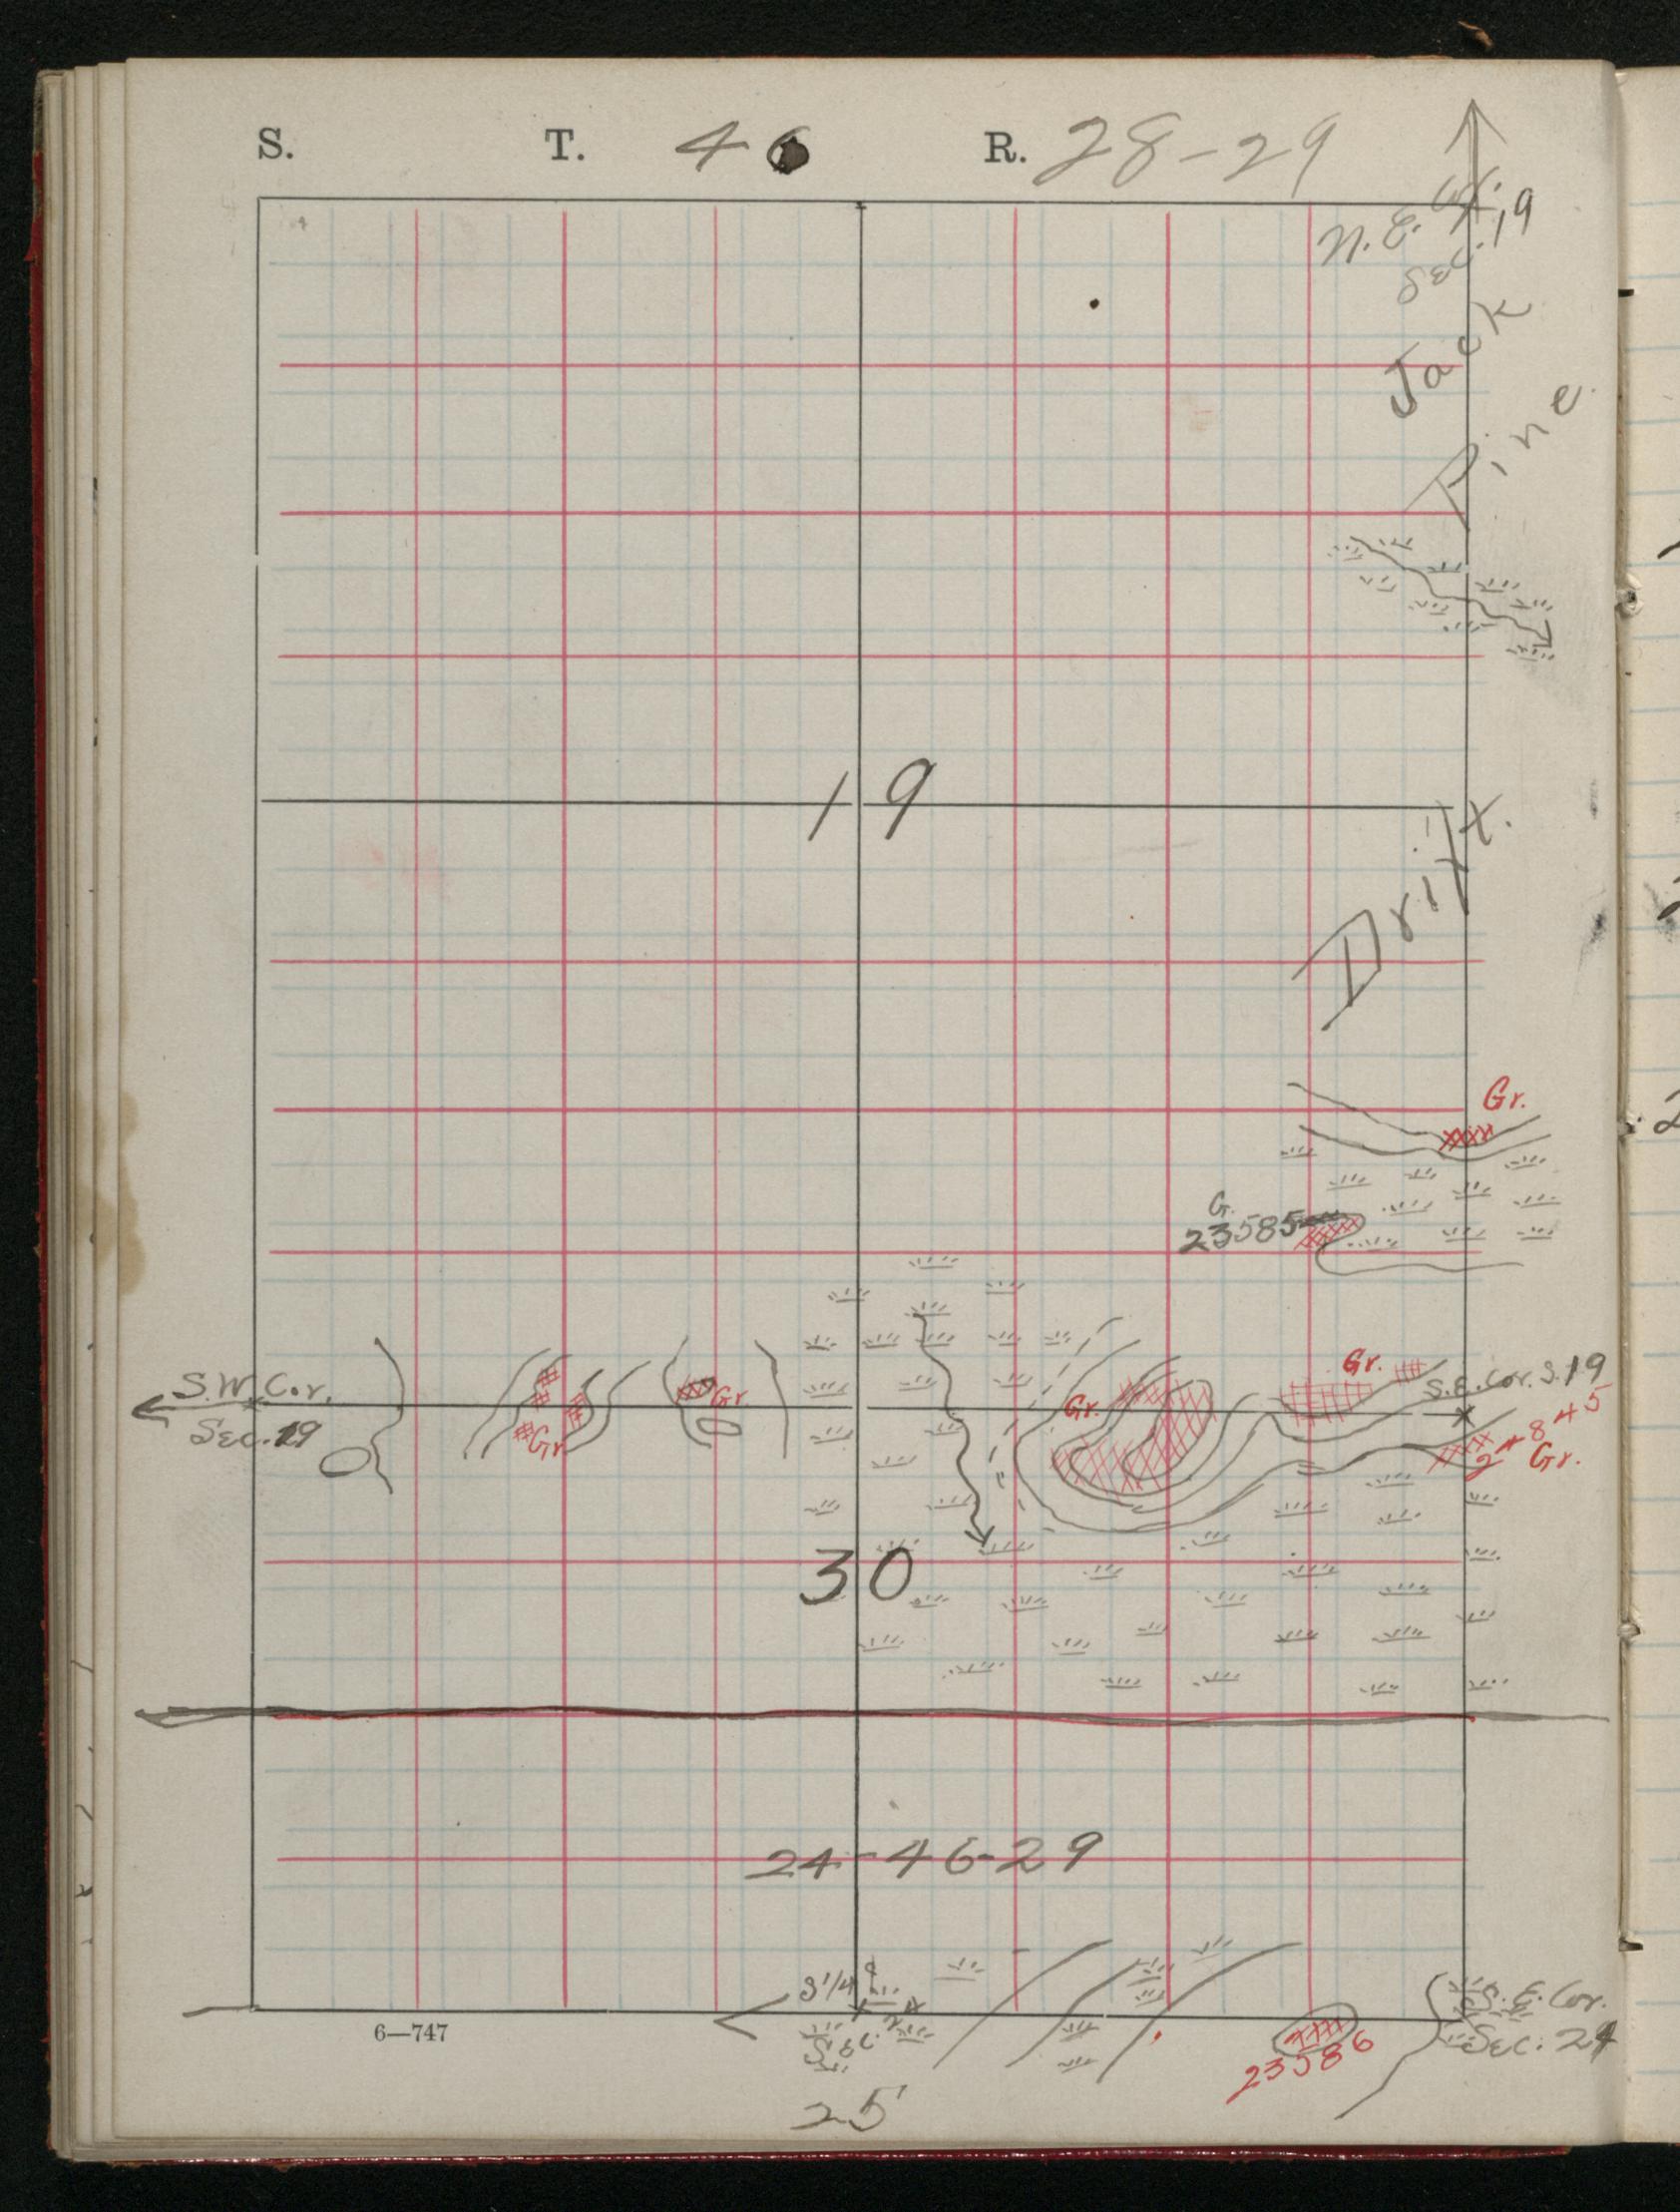 S. T. 46 R. 28-29
N. E. Cor.
Sec. 19
Jack
Pine
19
Drift.
Gr.
G.
23585
Gr.
S.W. Cor.
Sec. 19
Gr.
Gr.
Gr.
S.E. Cor. S. 19
24845
Gr.
30
24-46-29
S 1/4
Sec. 24
S. E. Cor.
Sec. 24
6—747
23586
25